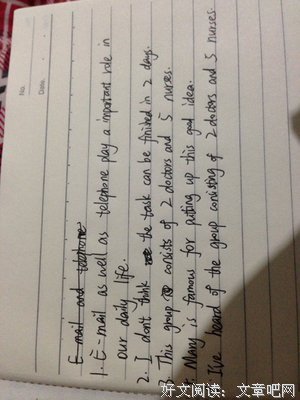 No.
Date
E-mail and telephone
1. E-mail as well as telephone play a important role in
our daily life.
2. I don't think the task can be finished in 2 days.
This group consists of 2 doctors and 5 nurses.
Mary is famous for putting up this good idea.
I've heard of the group consisting of 2 doctors and 5 nurses.
好文阅读：文章吧网